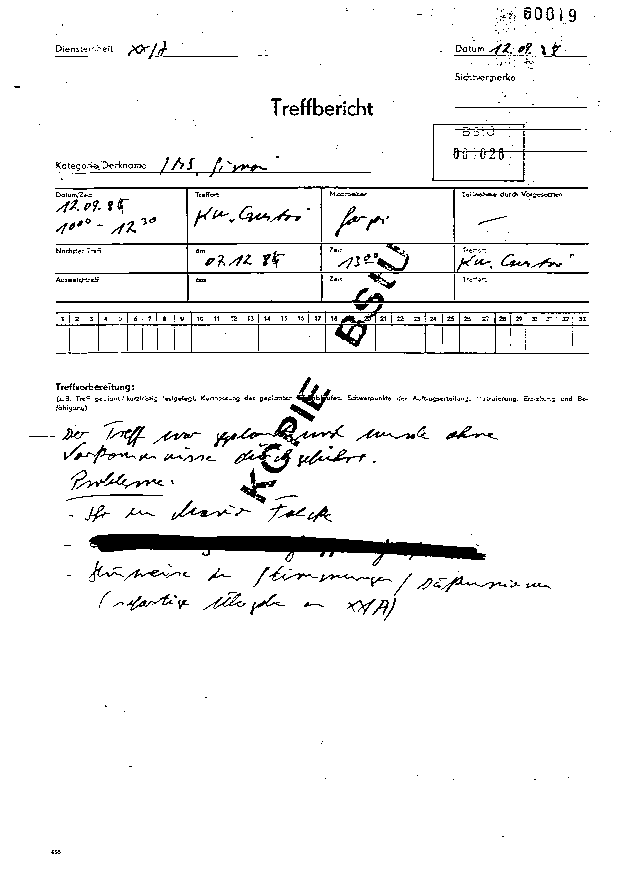 60019
Diensteinheit XX/A Datum 12.09.85
Sichtvermerke
Treffbericht
BStU
001020
Kategorie/Deckname IMS "Simon"
Datum/Zeit Treffort Mitarbeiter Teilnahme durch Vorgesetzten
12.09.85
10⁰⁰ - 12³⁰ KW. —
Nächster Treff am Zeit Treffort
02.12.85 13⁰⁰ KW.
Ausweichtreff am Zeit Treffort
1 2 3 4 5 6 7 8 9 10 11 12 13 14 15 16 17 18 19 20 21 22 23 24 25 26 27 28 29 30 31 32 33
KOPIE BStU
Treffvorbereitung:
(z.B. Treff geplant/kurzfristig festgelegt, Konzeption des geplanten Treffablaufes, Schwerpunkte der Auftragserteilung, Instruierung, Erziehung und Be-
fähigung)
Der Treff war geplant und wurde ohne
Vorkommnisse durchgeführt.
Probleme:
- Mario Falcke
-
- Hinweise zu Stimmungen / Diskussionen
(sofortige Übergabe an XX/A)